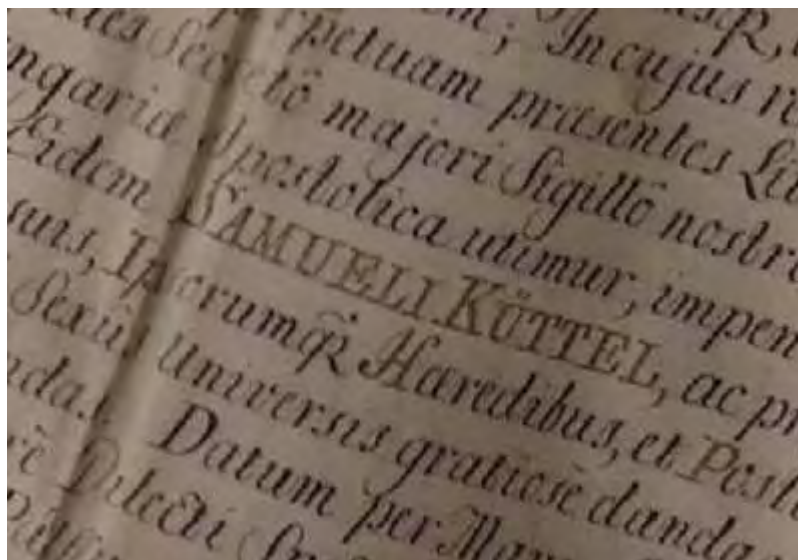 In cujus
rpetuam præsentes
Secretô majori Sigillô nostri
ngariæ Apostolica utimur, impen
Eidem SAMUELI KÜTTEL, ac
suis, Ipsorumq̃ Hæredibus, et Post
Sexûs Universis gratiosè danda
ndas. Datum per
Dilecti